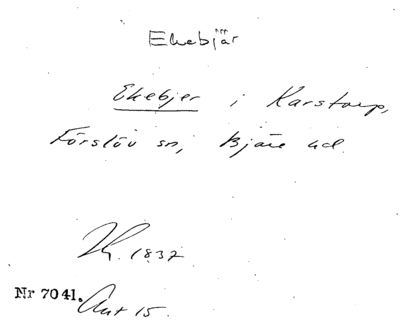 Ekebjär
Ekebjer i Karstorp,
Förslöv sn, Bjäre hd.
1837
Nr 7041. Aut 15.